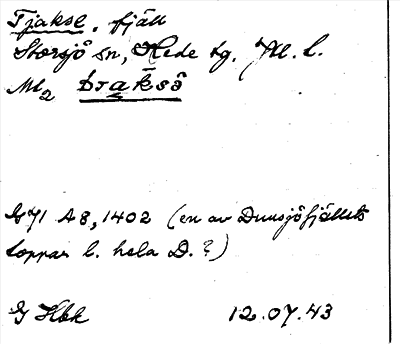 Tjakse, fjäll
Storsjö sn, Hede tg. Jtl. l.
M2 tjaksé
GJl A8, 1402 (en av Dunsjöfjällets
toppar l. hela D.?)
G Hbk 12.07.43